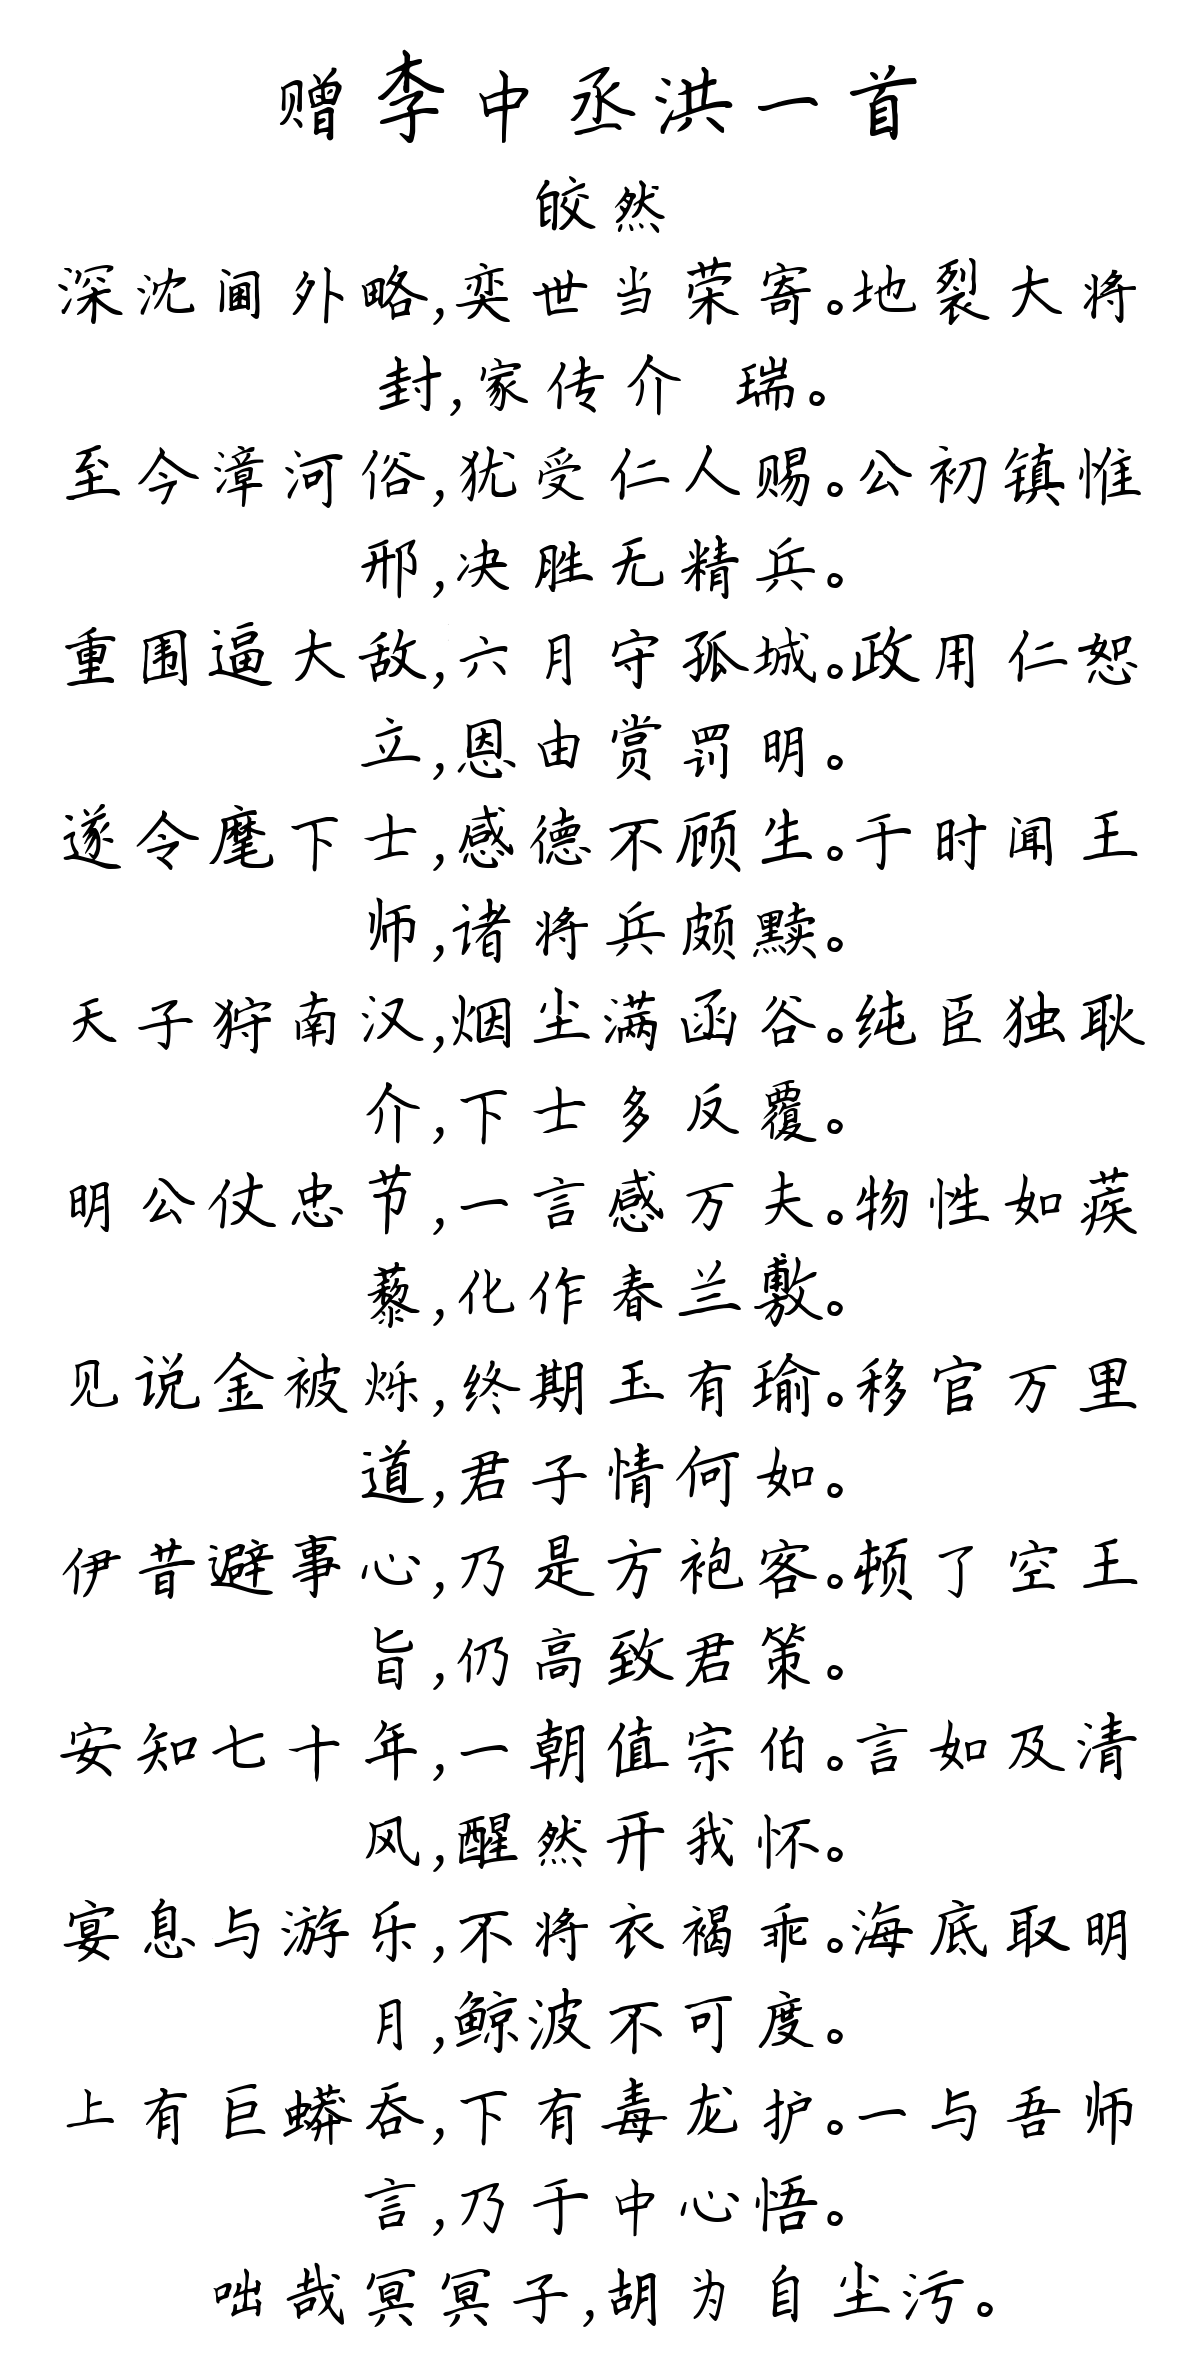 赠李中丞洪一首
皎然
深沈阃外略,奕世当荣寄。地裂大将
封,家传介 瑞。
至今漳河俗,犹受仁人赐。公初镇惟
邢,决胜无精兵。
重围逼大敌,六月守孤城。政用仁恕
立,恩由赏罚明。
遂令麾下士,感德不顾生。于时闻王
师,诸将兵颇黩。
天子狩南汉,烟尘满函谷。纯臣独耿
介,下士多反覆。
明公仗忠节,一言感万夫。物性如蒺
藜,化作春兰敷。
见说金被烁,终期玉有瑜。移官万里
道,君子情何如。
伊昔避事心,乃是方袍客。顿了空王
旨,仍高致君策。
安知七十年,一朝值宗伯。言如及清
风,醒然开我怀。
宴息与游乐,不将衣褐乖。海底取明
月,鲸波不可度。
上有巨蟒吞,下有毒龙护。一与吾师
言,乃于中心悟。
咄哉冥冥子,胡为自尘污。